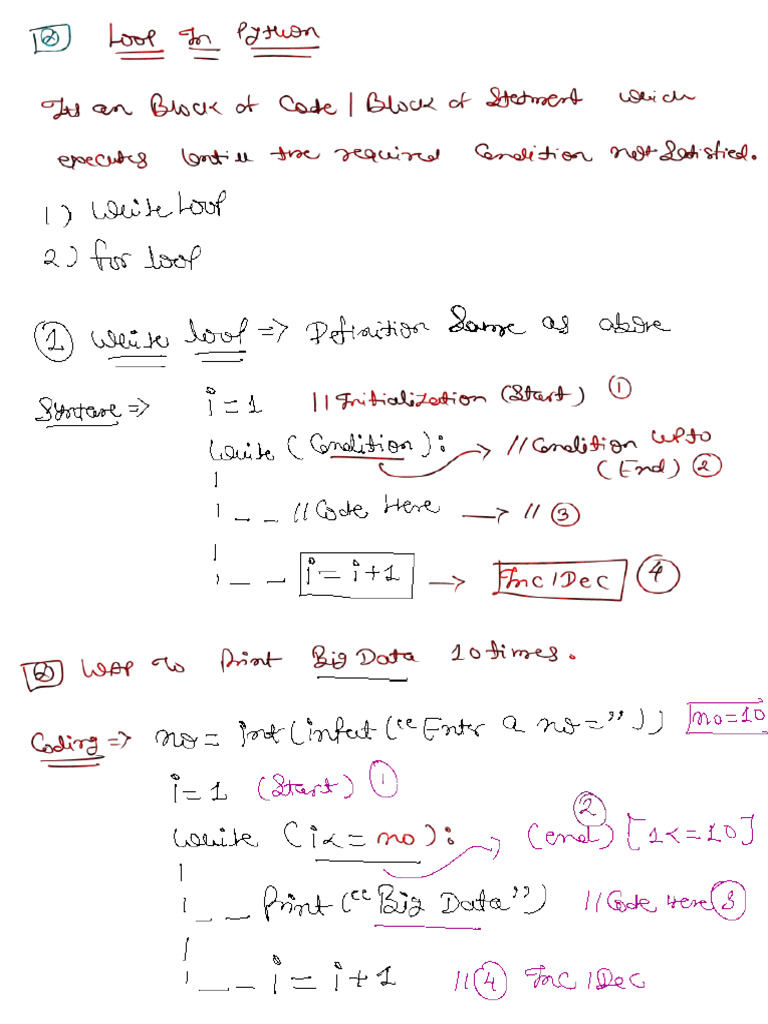 Q Loop In Python
Its an Block of Code | Block of Statment which
executes until the required Condition not Satisfied.
1) While Loop
2) for loop
1 While loop => Definition Same as above
Syntax => i = 1 // Initialization (Start) 1
While (Condition): -> // Condition Upto
(End) 2
-- // Code Here -> // 3
-- i = i+1 -> Inc / Dec 4
Q WAP to Print Big Data 10 times.
Coding => no = int(input("Enter a no=")) no=10
i=1 (Start) 1
2
While (i<=no): -> (end) [1<=10]
-- Print("Big Data") // Code Here 3
-- i = i+1 // 4 Inc / Dec